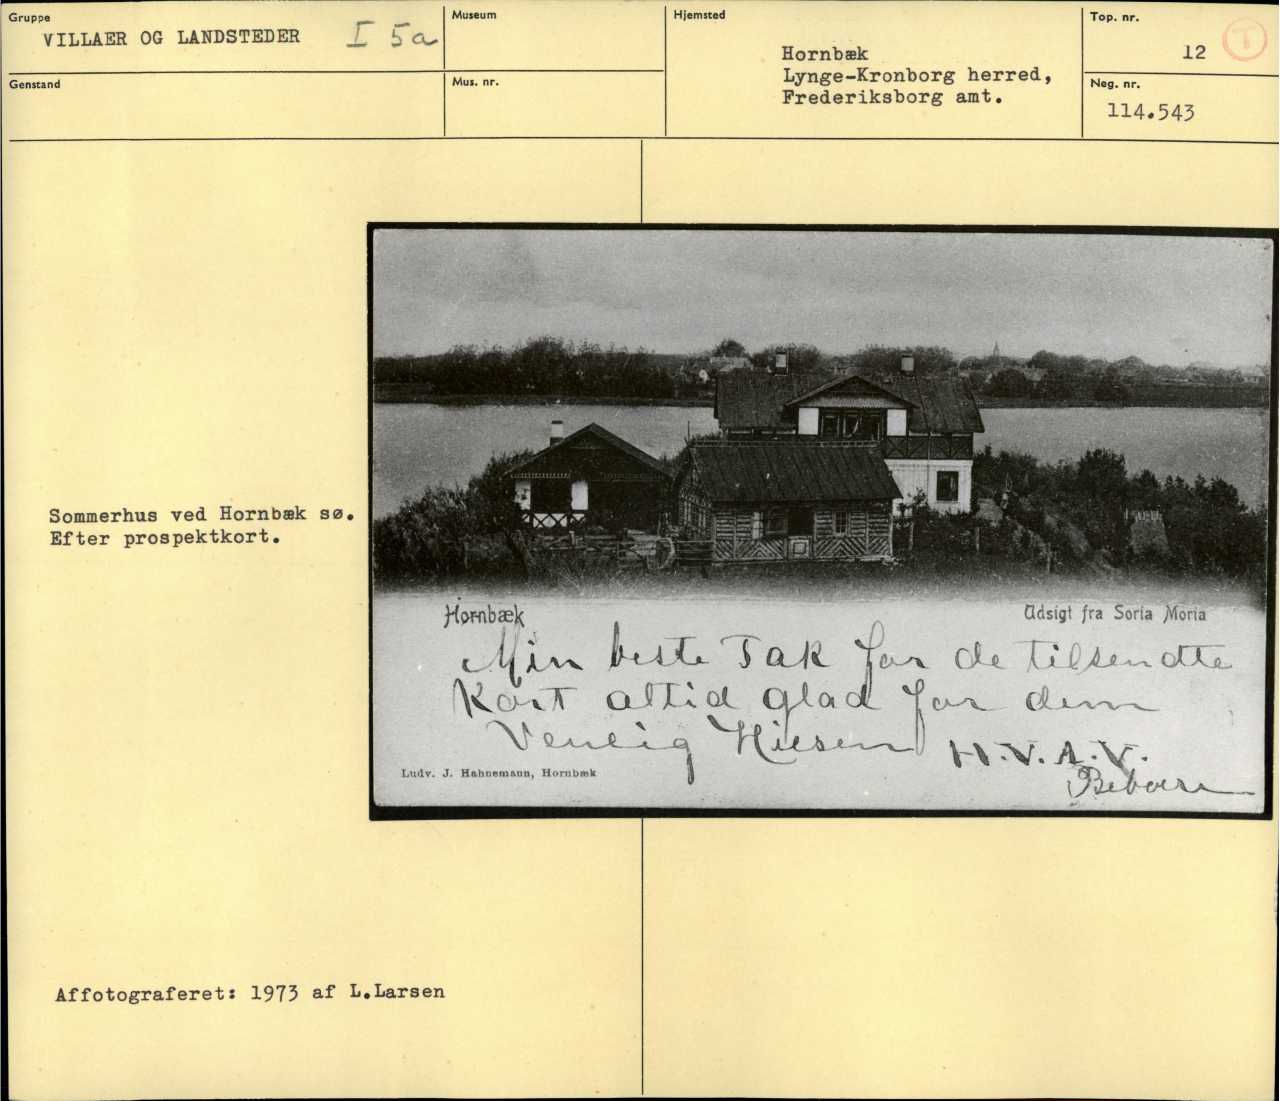 Gruppe
VILLAER OG LANDSTEDER I 5a
Museum
Hjemsted
Hornbæk
Lynge-Kronborg herred,
Frederiksborg amt.
Top. nr.
12 T
Genstand
Mus. nr.
Neg. nr.
114.543
Sommerhus ved Hornbæk sø.
Efter prospektkort.
Hornbæk
Udsigt fra Soria Moria
Min beste Tak for de tilsendte
Kort altid glad for dem
Venlig Hilsen H.V.A.V.
Ludv. J. Hahnemann, Hornbæk
Affotograferet: 1973 af L.Larsen